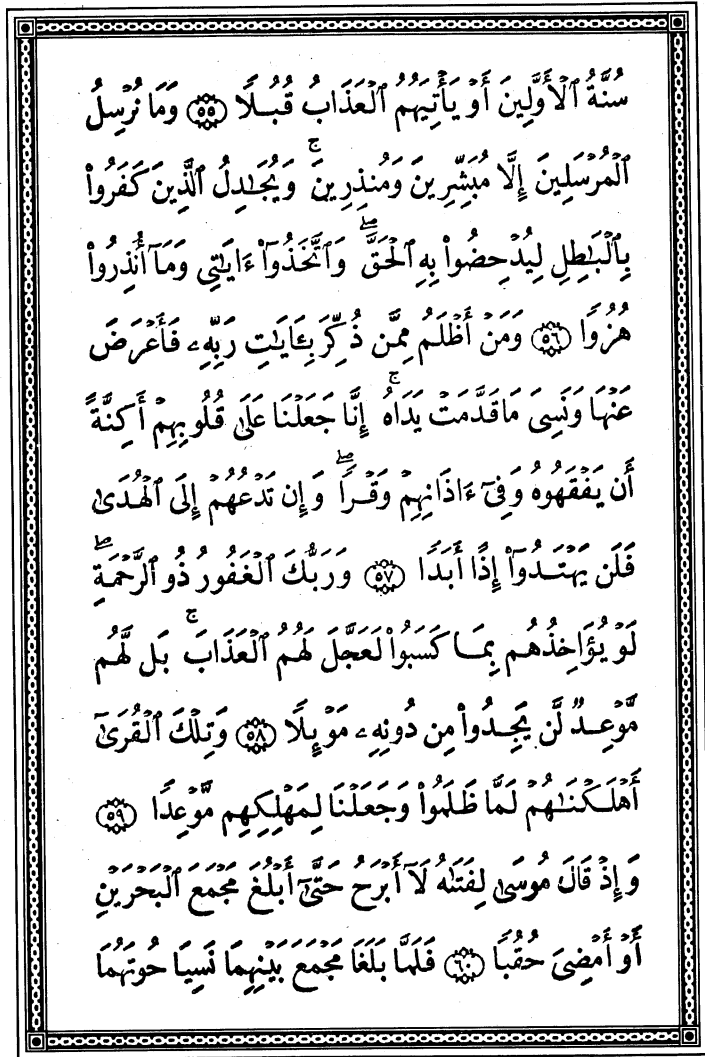 سُنَّةُ ٱلْأَوَّلِينَ أَوْ يَأْتِيَهُمُ ٱلْعَذَابُ قُبُلًا ﴿٥٥﴾ وَمَا نُرْسِلُ
ٱلْمُرْسَلِينَ إِلَّا مُبَشِّرِينَ وَمُنذِرِينَ ۚ وَيُجَـٰدِلُ ٱلَّذِينَ كَفَرُوا۟
بِٱلْبَـٰطِلِ لِيُدْحِضُوا۟ بِهِ ٱلْحَقَّ ۖ وَٱتَّخَذُوٓا۟ ءَايَـٰتِى وَمَآ أُنذِرُوا۟
هُزُوًا ﴿٥٦﴾ وَمَنْ أَظْلَمُ مِمَّن ذُكِّرَ بِـَٔايَـٰتِ رَبِّهِۦ فَأَعْرَضَ
عَنْهَا وَنَسِىَ مَا قَدَّمَتْ يَدَاهُ ۚ إِنَّا جَعَلْنَا عَلَىٰ قُلُوبِهِمْ أَكِنَّةً
أَن يَفْقَهُوهُ وَفِىٓ ءَاذَانِهِمْ وَقْرًا ۖ وَإِن تَدْعُهُمْ إِلَى ٱلْهُدَىٰ
فَلَن يَهْتَدُوٓا۟ إِذًا أَبَدًا ﴿٥٧﴾ وَرَبُّكَ ٱلْغَفُورُ ذُو ٱلرَّحْمَةِ ۖ
لَوْ يُؤَاخِذُهُم بِمَا كَسَبُوا۟ لَعَجَّلَ لَهُمُ ٱلْعَذَابَ ۚ بَل لَّهُم
مَّوْعِدٌ لَّن يَجِدُوا۟ مِن دُونِهِۦ مَوْئِلًا ﴿٥٨﴾ وَتِلْكَ ٱلْقُرَىٰٓ
أَهْلَكْنَـٰهُمْ لَمَّا ظَلَمُوا۟ وَجَعَلْنَا لِمَهْلِكِهِم مَّوْعِدًا ﴿٥٩﴾
وَإِذْ قَالَ مُوسَىٰ لِفَتَىٰهُ لَآ أَبْرَحُ حَتَّىٰٓ أَبْلُغَ مَجْمَعَ ٱلْبَحْرَيْنِ
أَوْ أَمْضِىَ حُقُبًا ﴿٦٠﴾ فَلَمَّا بَلَغَا مَجْمَعَ بَيْنِهِمَا نَسِيَا حُوتَهُمَا